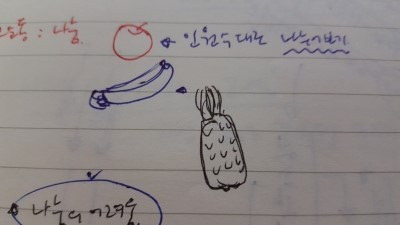 : 나눔 인원수대로 나눠보기
나눔의 어려움